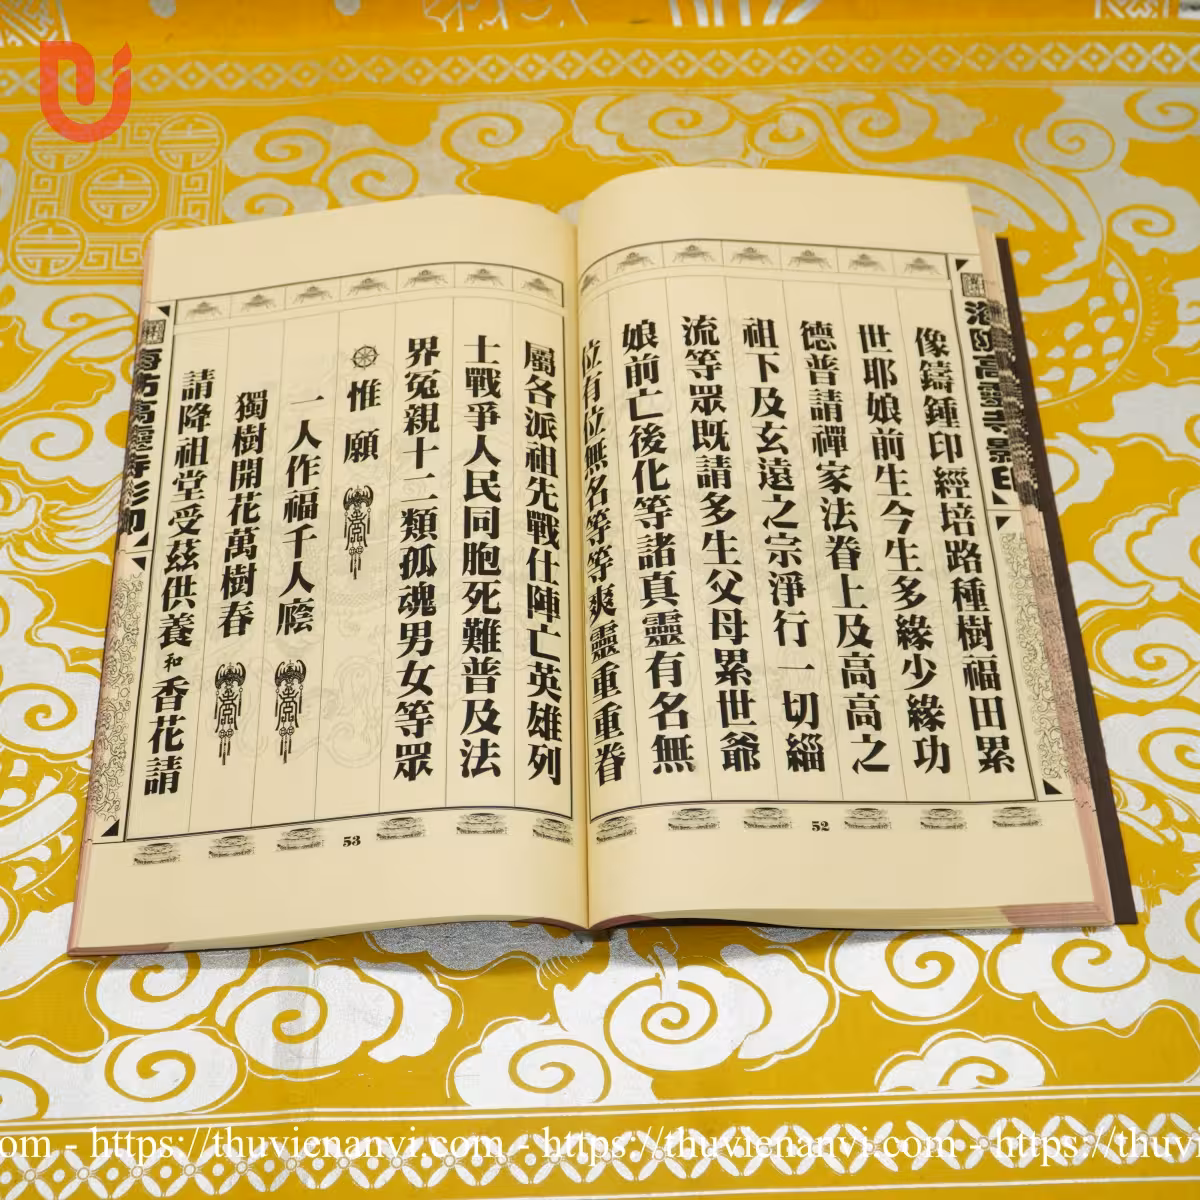 像鑄鍾印經培路種樹福田累
世耶娘前生今生多緣少緣功
德普請禪家法眷上及高高之
祖下及玄遠之宗淨行一切緇
流等眾既請多生父母累世爺
娘前亡後化等諸真靈有名無
位有位無名等等爽靈重重眷
52
屬各派祖先戰仕陣亡英雄列
士戰爭人民同胞死難普及法
界冤親十二類孤魂男女等眾
惟願
一人作福千人廕
獨樹開花萬樹春
請降祖堂受茲供養和香花請
53
https://thuvienanvi.com - https://thuvienanvi.com - https://thuvi